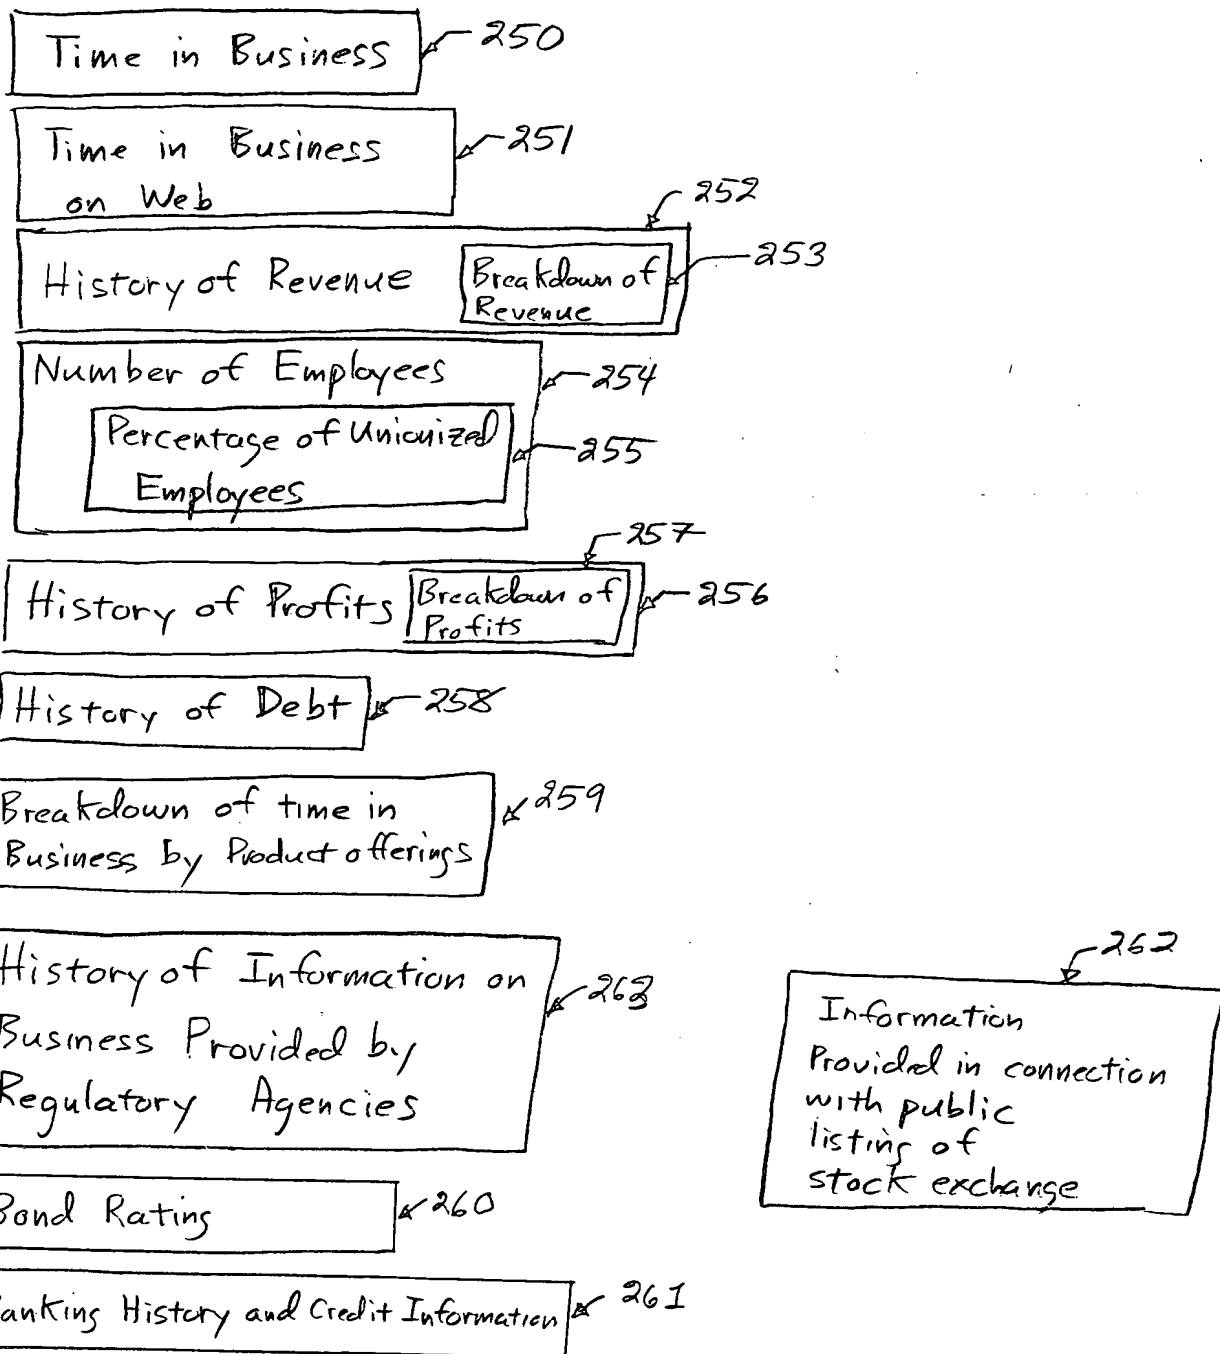 Time in Business
250
Time in Business
on Web
251
252
History of Revenue
Breakdown of
Revenue
253
Number of Employees
254
Percentage of Unionized
Employees
255
257
History of Profits
Breakdown of
Profits
256
History of Debt
258
Breakdown of time in
Business by Product offerings
259
History of Information on
Business Provided by
Regulatory Agencies
263
262
Information
Provided in connection
with public
listing of
stock exchange
Bond Rating
260
anking History and Credit Information
261